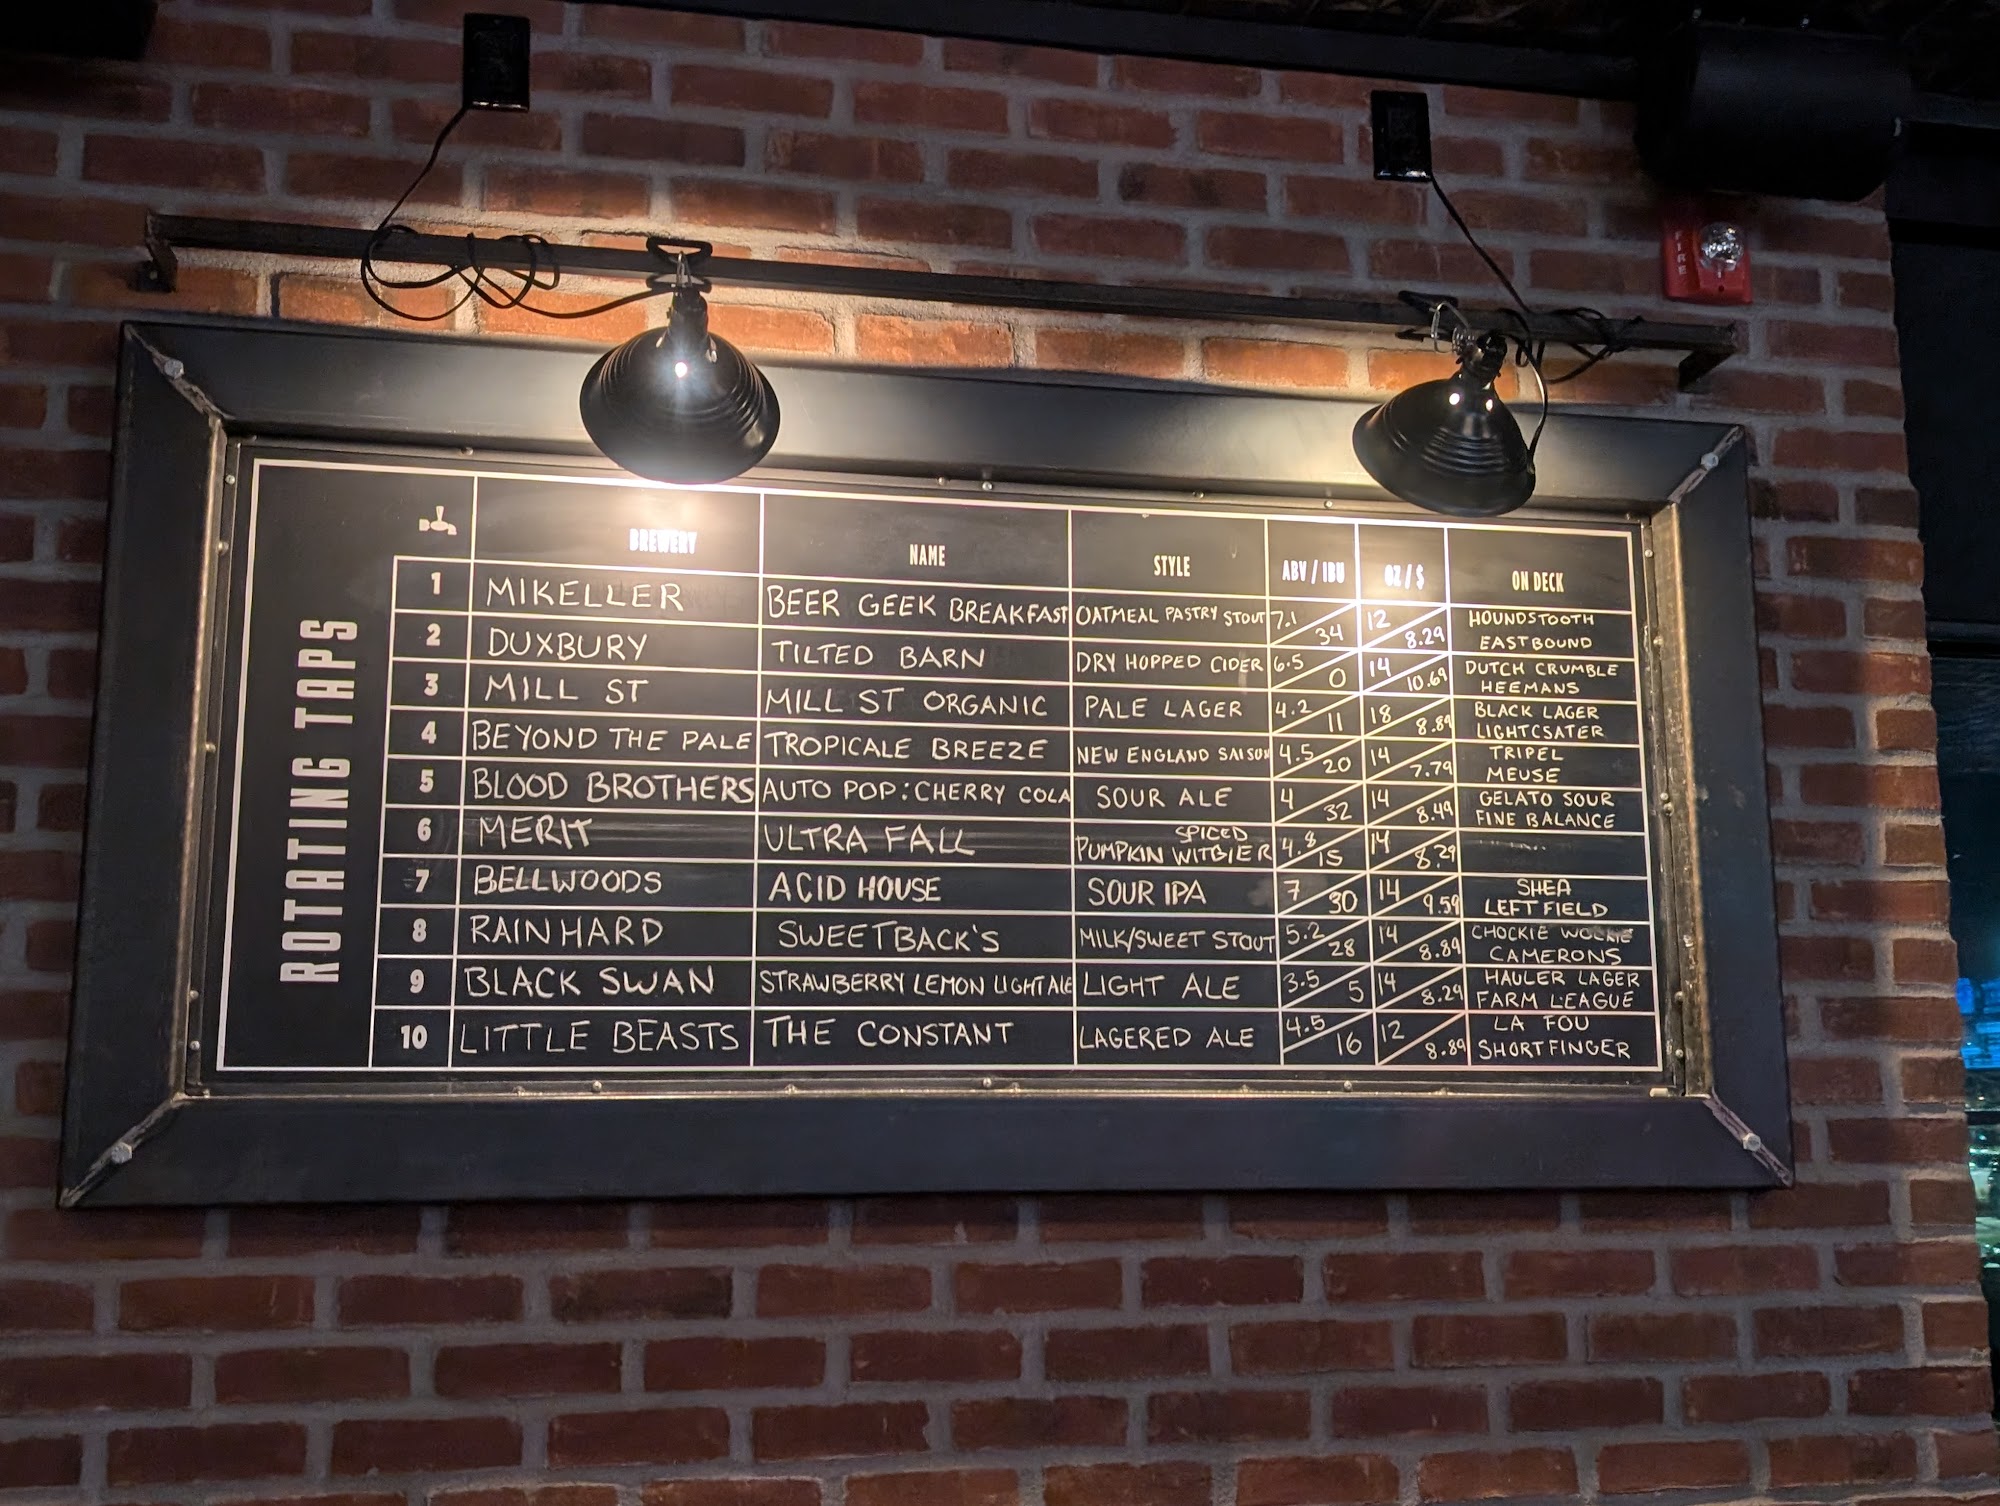 FIRE
ROTATING TAPS
BREWERY NAME STYLE ABV / IBU OZ / $ ON DECK
1 MIKELLER BEER GEEK BREAKFAST OATMEAL PASTRY STOUT 7.1 34 12 8.29 HOUNDSTOOTH EASTBOUND
2 DUXBURY TILTED BARN DRY HOPPED CIDER 6.5 0 14 10.69 DUTCH CRUMBLE HEEMANS
3 MILL ST MILL ST ORGANIC PALE LAGER 4.2 11 18 8.89 BLACK LAGER LIGHTCSATER
4 BEYOND THE PALE TROPICALE BREEZE NEW ENGLAND SAISON 4.5 20 14 7.79 TRIPEL MEUSE
5 BLOOD BROTHERS AUTO POP: CHERRY COLA SOUR ALE 4 32 14 8.49 GELATO SOUR FINE BALANCE
6 MERIT ULTRA FALL SPICED PUMPKIN WITBIER 4.8 15 14 8.29
7 BELLWOODS ACID HOUSE SOUR IPA 7 30 14 9.59 SHEA LEFT FIELD
8 RAINHARD SWEETBACK'S MILK/SWEET STOUT 5.2 28 14 8.89 CHOCKIE WOCKIE CAMERONS
9 BLACK SWAN STRAWBERRY LEMON LIGHT ALE LIGHT ALE 3.5 5 14 8.29 HAULER LAGER FARM LEAGUE
10 LITTLE BEASTS THE CONSTANT LAGERED ALE 4.5 16 12 8.89 LA FOU SHORTFINGER